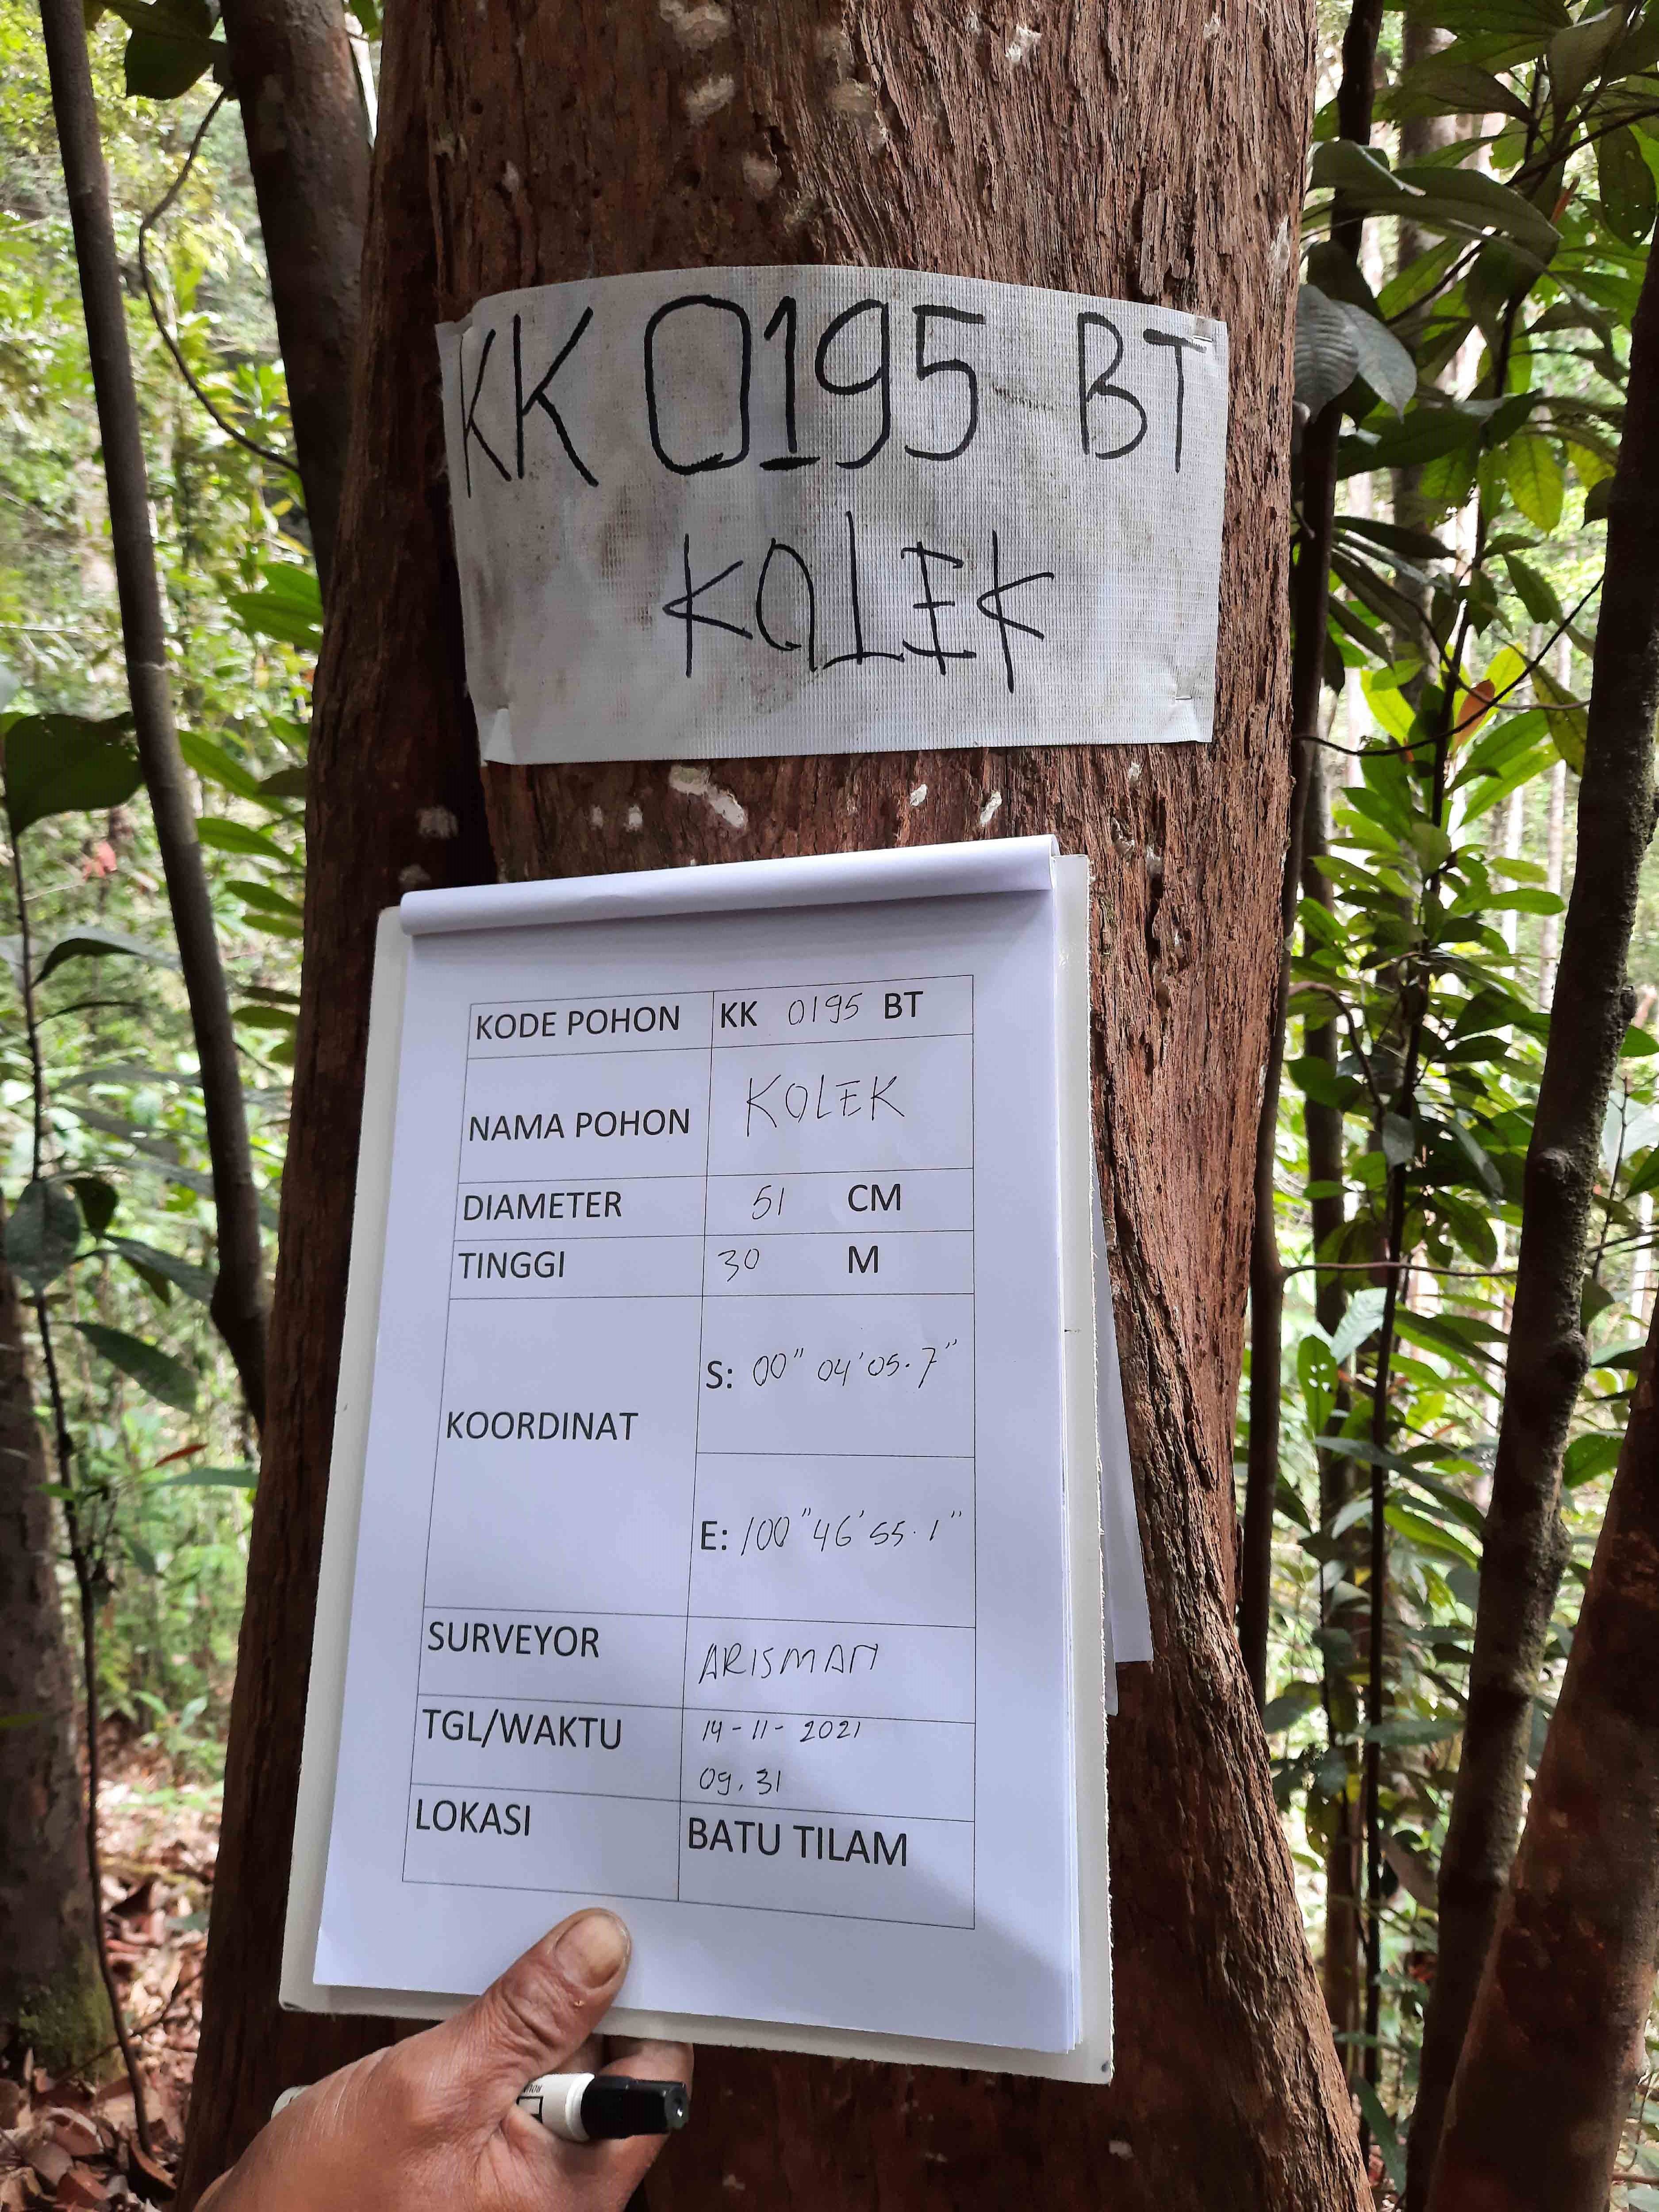 KK 0195 BT
KOLEK
KODE POHON KK 0195 BT
NAMA POHON KOLEK
DIAMETER 51 CM
TINGGI 30 M
KOORDINAT
S: 00" 04' 05.7"
E: 100" 46' 55.1"
SURVEYOR ARISMAN
TGL/WAKTU 14-11-2021
09.31
LOKASI BATU TILAM